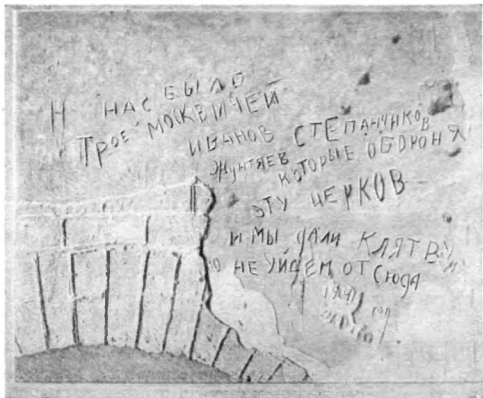 НАС БЫЛО
ТРОЕ МОСКВИЧЕЙ
ИВАНОВ СТЕПАНЧИКОВ
ЖУНТЯЕВ КОТОРЫЕ ОБОРОНЯ
ЭТУ ЦЕРКОВ
И МЫ ДАЛИ КЛЯТВУ
НЕ УЙДЕМ ОТ СЮДА
1941